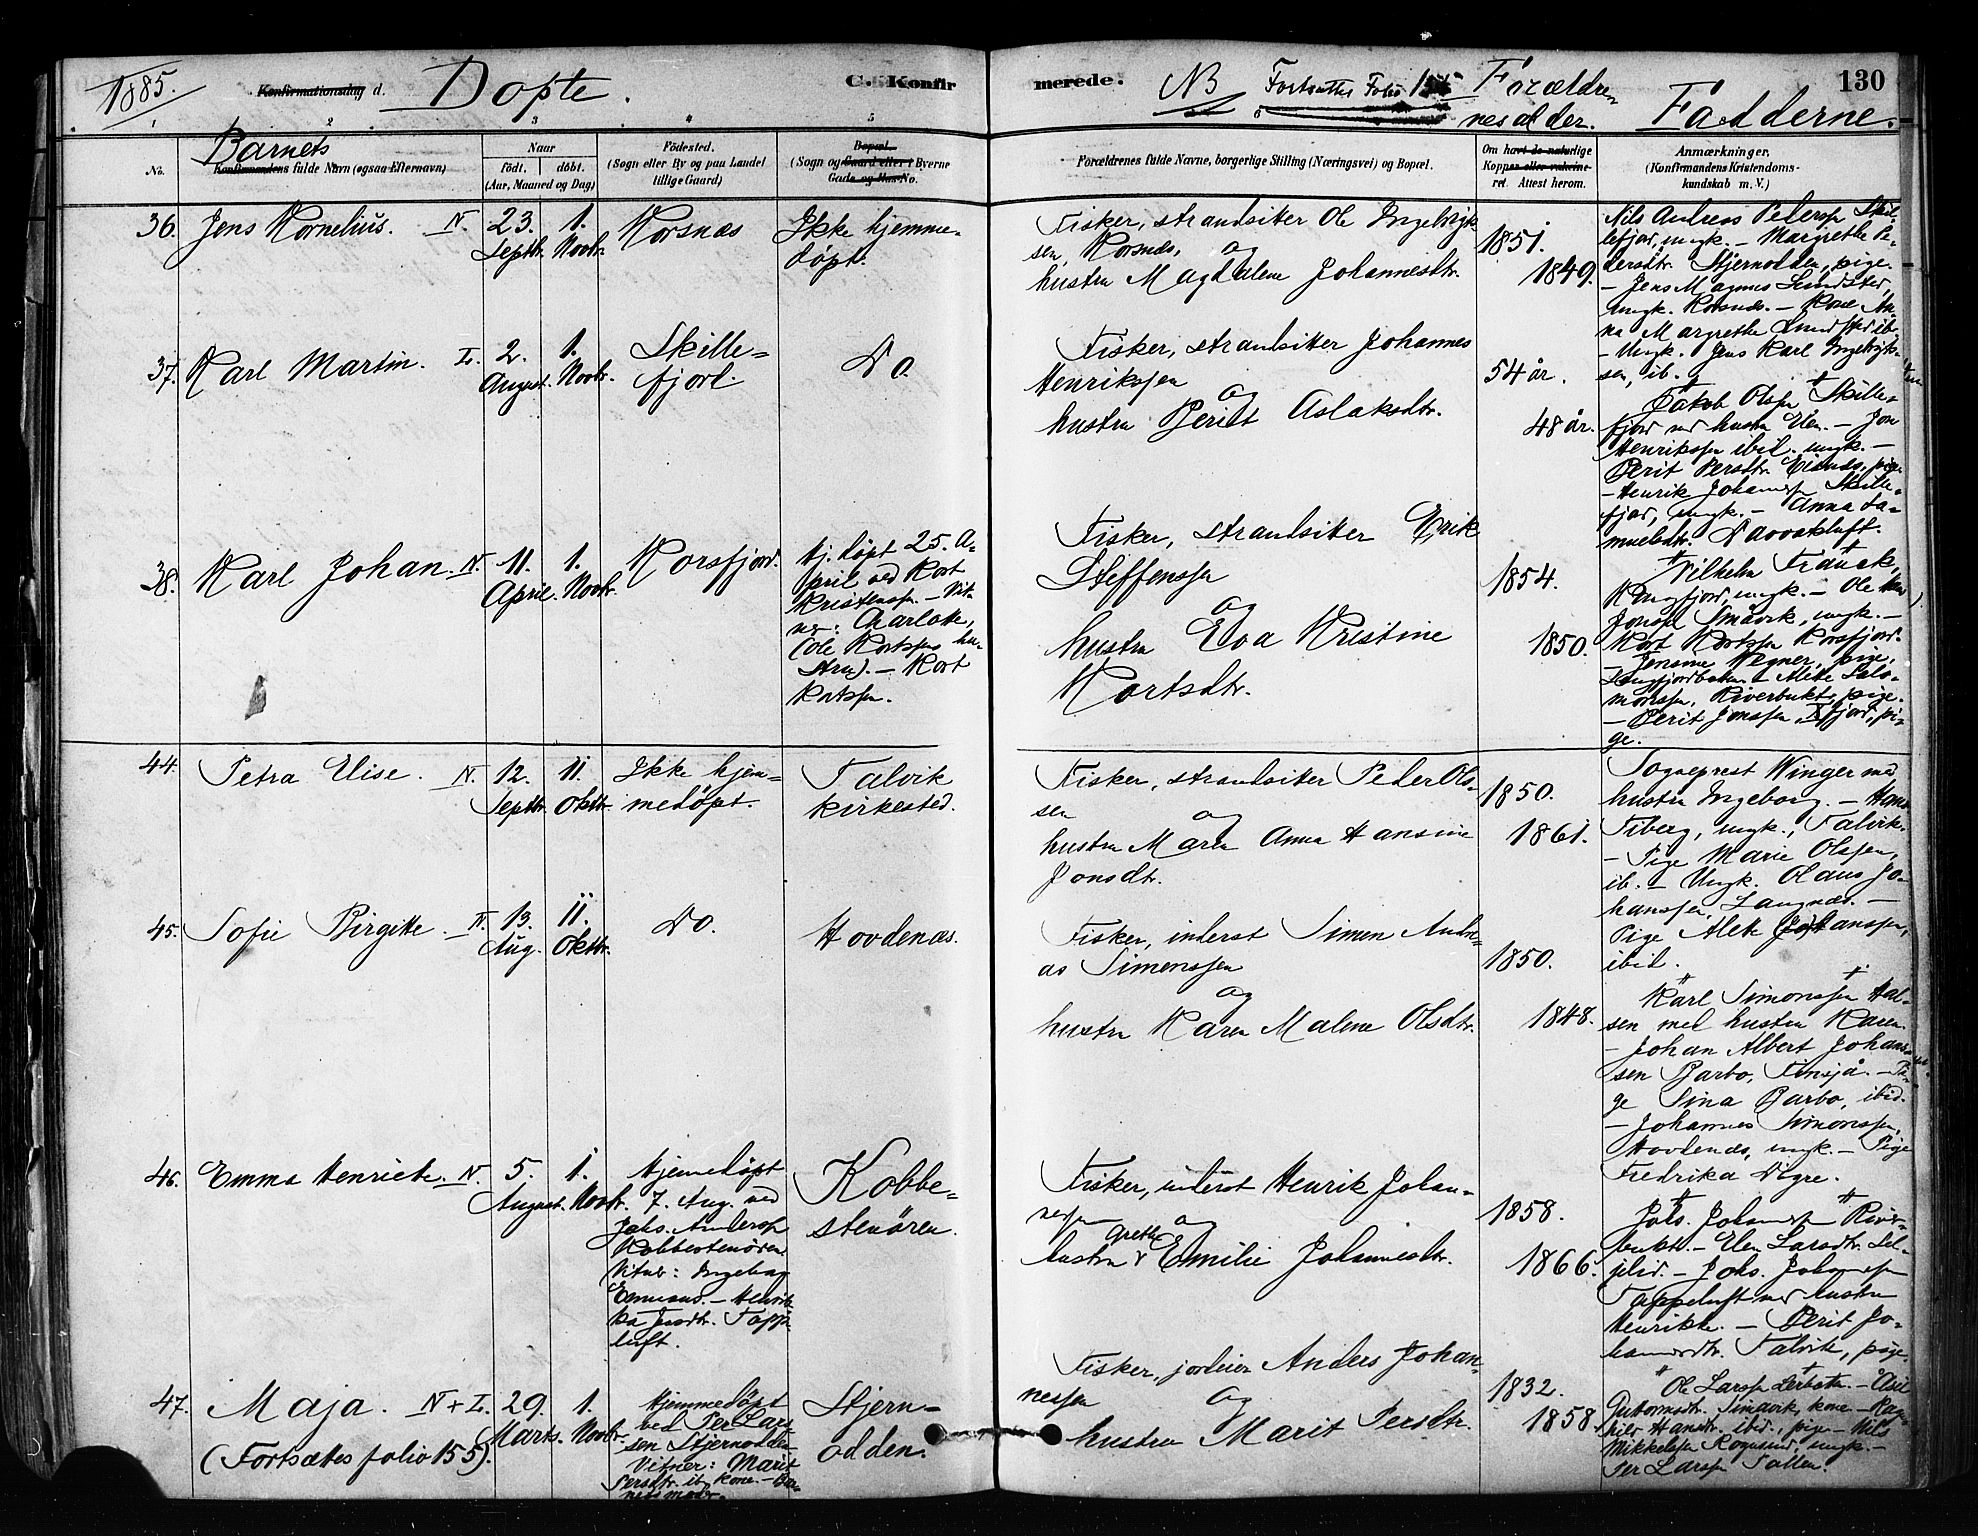 1885.
Konfirmationsdag d. Døpte.
C. Konfirmerede.
NB Fortsættes Folio 155
Forældrenes alder.
Fadderne.
130
1 2 3 4 5 6
No.
Barnets
Konfirmandens fulde Navn (ogsaa Efternavn)
Naar
Födt. döbt.
(Aar, Maaned og Dag)
Födested.
(Sogn eller By og paa Landet
tillige Gaard)
Bopæl.
(Sogn og Gaard eller i Byerne
Gade og Hus-No.
Forældrenes fulde Navne, borgerlige Stilling (Næringsvei) og Bopæl.
Om havt de naturlige
Kopper eller vakcineret. Attest herom.
Anmærkninger,
(Konfirmandens Kristendomskundskab m. V.)
36. Jens Kornelius. N. 23. Septbr. 1. Novbr. Korsnæs
Ikke hjemmedøpt.
Fisker, strandsitter Ole Ingebrigtsen, Korsnæs, og
hustru Magdalene Johannesdtr.
1851.
1849.
Nils Andreas Peders. Skillefjord, ungk. – Margrethe Pedersdtr. Stjernodden, pige.
– Jens Magnus Lundsted,
ungk. Korsnæs. – Kone Anna Margrethe Lundsted ib.
– Ungk. Jens Karl Ingebrigtsen, ib.
37. Karl Martin. L. 2. August. 1. Novbr. Skillefjord. Do.
Fisker, strandsitter Johannes
Henrikssen
og
hustru Berit Aslaksdtr.
54 år.
48 år.
Jakob Olsen Skillefjord med hustru Elen. – Jon
Henrikssen ibid. ungk. –
Berit Persdtr. pige.
– Henrik Johannes. Skillefjord, ungk. – Anna Samuelsdtr. Davvaluft.
38. Karl Johan. N. 11. April. 1. Novbr. Korsfjord.
Hj. døpt 25. April ved Kort
Kristensen. – Vitner: Charlotte,
(Ole Kortsens hustru). – Kort
Kortssen.
Fisker, strandsitter Erik
Steffenssen
og
hustru Eva Kristine
Kortsdtr.
1854.
1850.
Vilhelm Franck,
Kongsfjord, ungk. – Ole
Jonsen Småvik, ungk. –
Kort Kortssen Korsfjord.
– Jensine Wegner, pige,
Langfjordbotten. – Alette Salomonssen, Riverbukt, pige.
– Berit Jonssen, pige.
44. Petra Elise. N. 12. Septbr. 11. Oktbr. Ikke hjemmedøpt.
Talvik
kirkested.
Fisker, strandsitter Peder Olssen
og
hustru Maren Anna Hansine
Jonsdtr.
1850.
1861.
Sogneprest Winger med
hustru Ingeborg. – Hans
Fiberg, ungk., Talvik.
– Pige Marie Olssen,
ib. – Ungk. Olaus Johanssen, Langnæs. –
Pige Alette Johanssen,
ibid.
45. Sofie Birgitte. N. 13. Aug. 11. Oktbr. Do. Hovdenæs.
Fisker, inderst Simon Andreas Simonssen
og
hustru Karen Malene Olsdtr.
1850.
1848.
Karl Simonssen Halsen med hustru Karen.
– Johan Albert Johanssen Barbo, Finsjå. – Pige Sina Barbo, ibid.
– Johannes Simonssen,
Hovdenæs, ungk. – Pige
Fredrika Digre.
46. Emma Henriette. N. 5. August. 1. Novbr.
Hjemmedøpt
7. Aug. ved
Johs. Anderss.
Kobbestenøren
Vitner: Ingeborg
– Henrikka Jonsdtr. Tappeluft.
Kobbestenøren.
Fisker, inderst Henrik Johannessen
og
hustru Grethe Emilie Johannesdtr.
1858.
1866.
Johs. Johannes. Riverbukt. – Elen Larsdtr.
– Johs. Johannes.
Tappeluft med hustru
Henrikke. – Berit Johannesdtr. Talvik, pige.
47. Maja. N + L. 29. Marts. 1. Novbr.
(Fortsættes folio 155).
Hjemmedøpt
ved Per Larssen Stjernodden
Vitner: Marit
Persdtr. ib. kone. –
Stjernodden.
Fisker, jordeier Anders Johannessen
og
hustru Marit Persdtr.
1832.
1858.
Ole Larssen –
Guttormsdtr. Småvik, kone. – Ragnhild Hansdtr. ibid., pige. – Nils
Mikkelsen Rognsund, ungk. –
Per Larssen